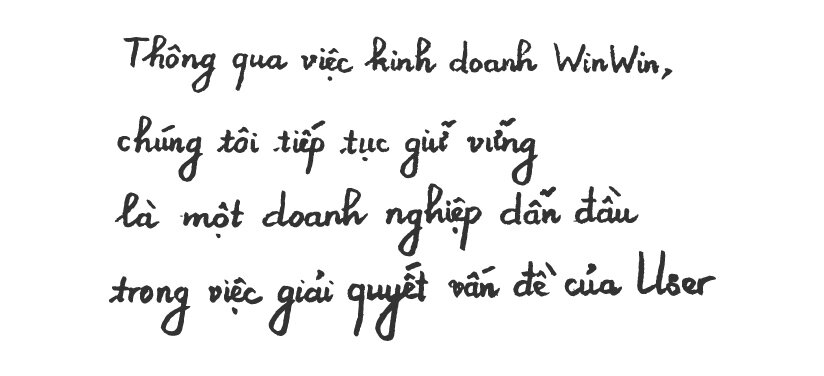 Thông qua việc kinh doanh WinWin,
chúng tôi tiếp tục giữ vững
là một doanh nghiệp dẫn đầu
trong việc giải quyết vấn đề của User